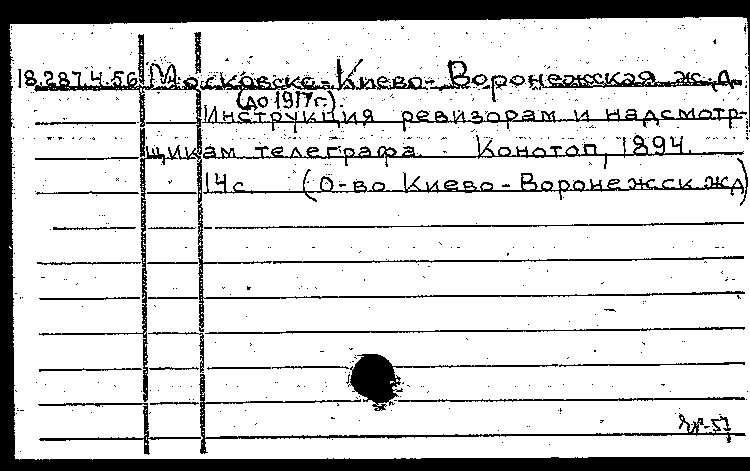 18.287.4.56 Московско-Киево-Воронежская ж.д.
(до 1917г.).
Инструкция ревизорам и надсмотр-
щикам телеграфа. Конотоп, 1894.
14с. (О-во Киево-Воронежск жд)